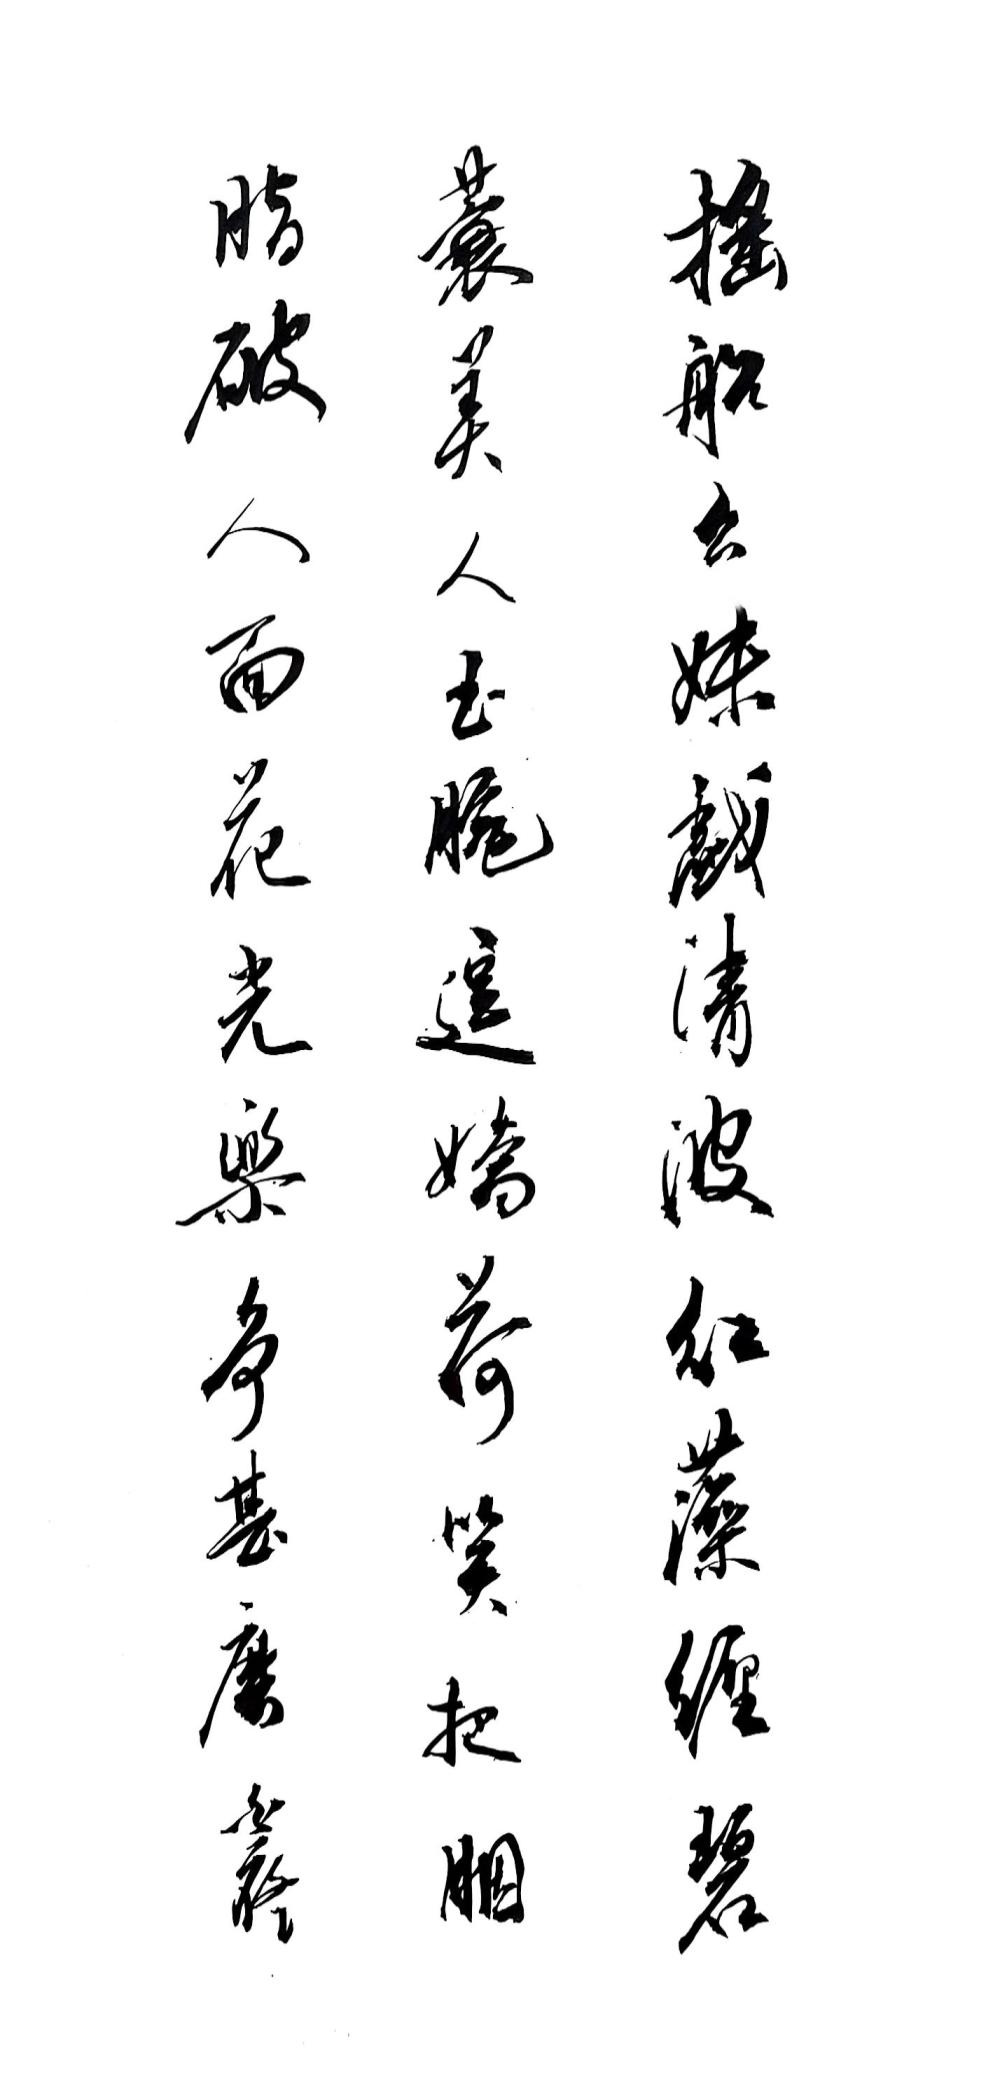 摇船公妹戲清波红藻缠碧
蓑美人玉腕逗嬌荷笑把胭
脂破人面花光樂争甚麼